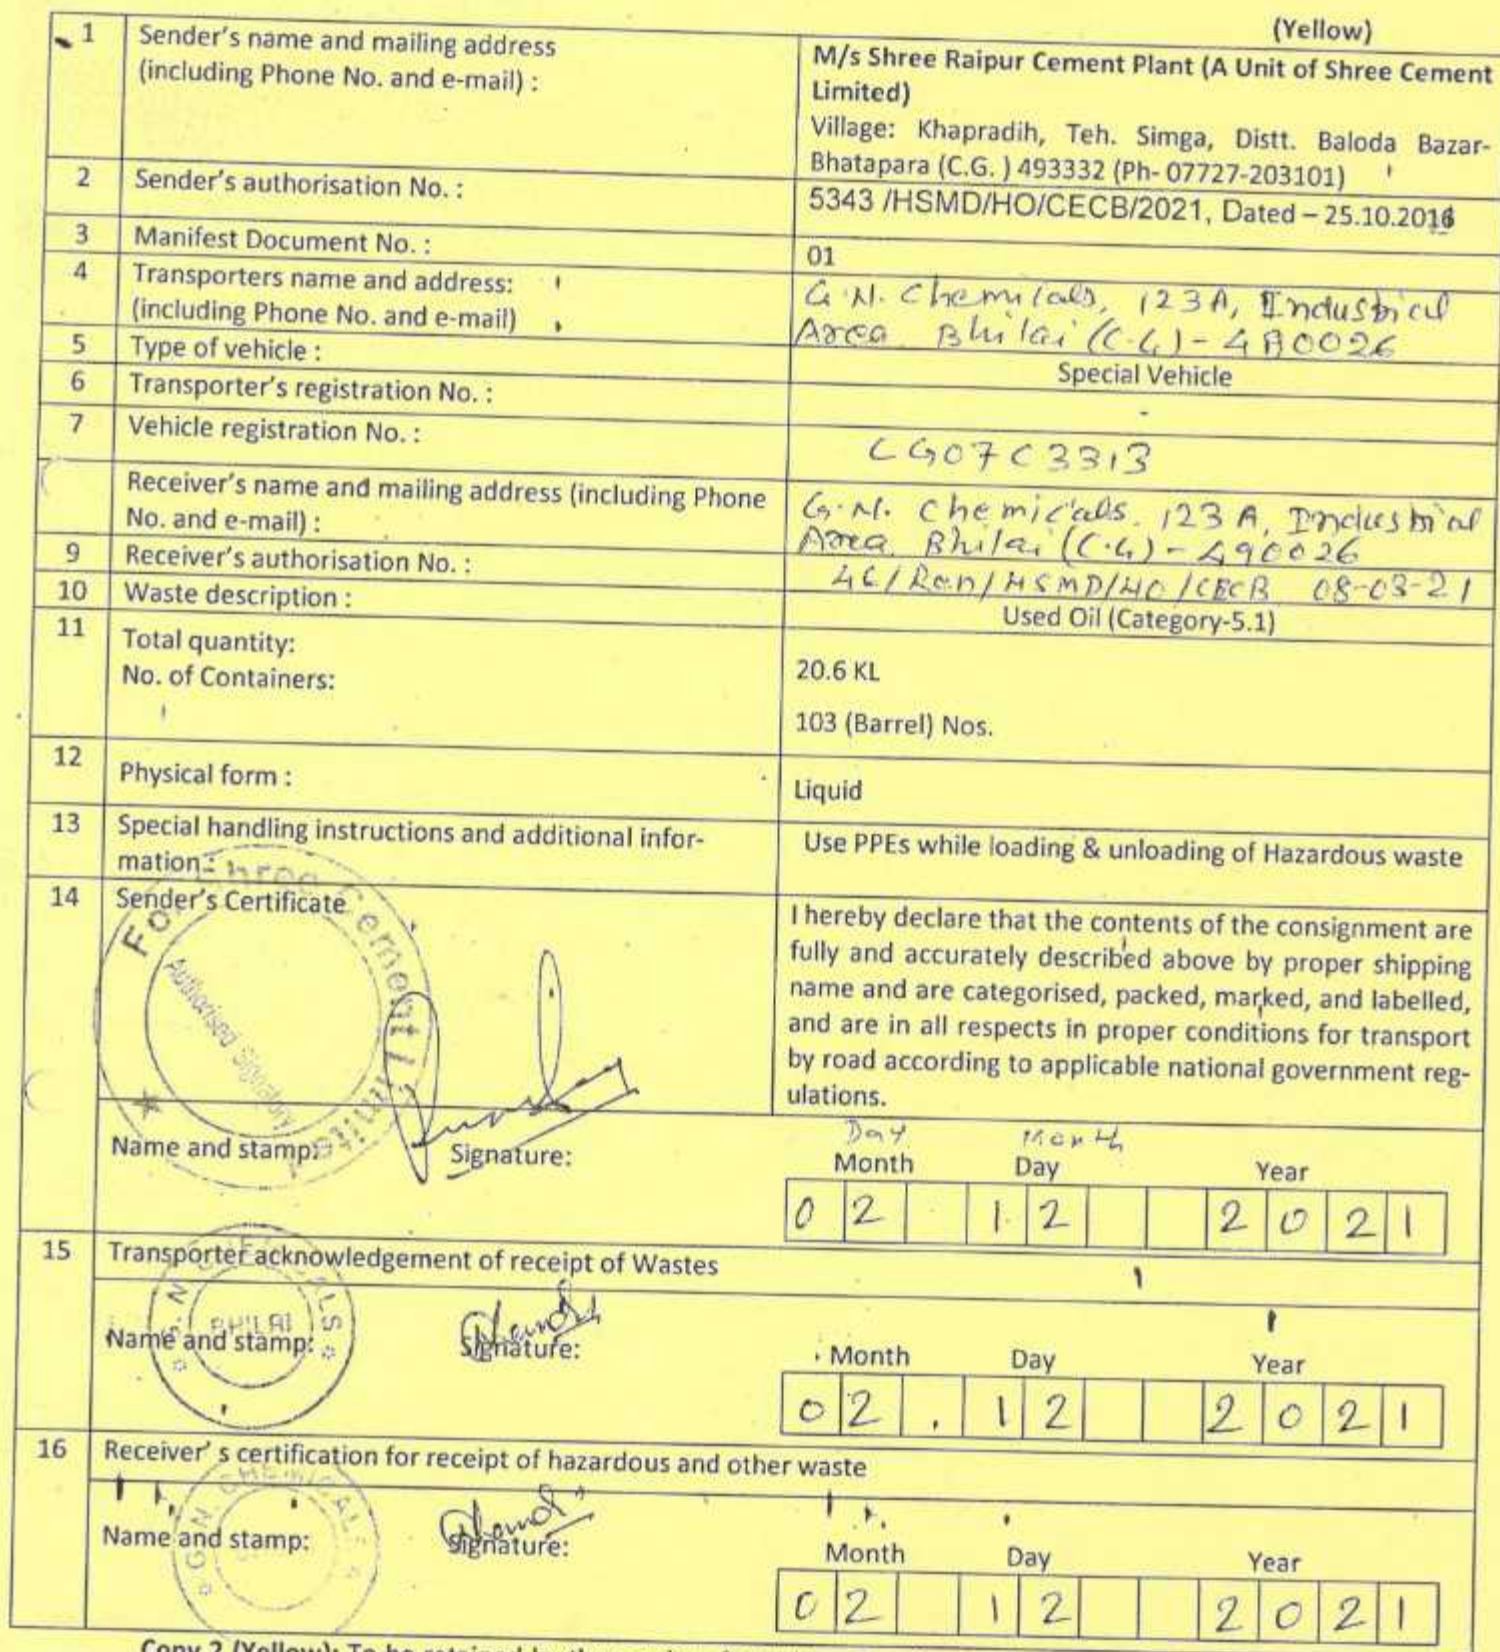 (Yellow)
1 Sender's name and mailing address
(including Phone No. and e-mail) :
M/s Shree Raipur Cement Plant (A Unit of Shree Cement
Limited)
Village: Khapradih, Teh. Simga, Distt. Baloda Bazar-
Bhatapara (C.G. ) 493332 (Ph- 07727-203101)
2 Sender's authorisation No. :
5343 /HSMD/HO/CECB/2021, Dated – 25.10.2016
3 Manifest Document No. :
01
4 Transporters name and address:
(including Phone No. and e-mail)
G.N. Chemicals, 123A, Industrical
Area Bhilai (C.G) - 490026
5 Type of vehicle :
Special Vehicle
6 Transporter's registration No. :
-
7 Vehicle registration No. :
CG07C3313
Receiver's name and mailing address (including Phone
No. and e-mail) :
G.N. Chemicals. 123 A, Industrial
Area Bhilai (C.G) - 490026
9 Receiver's authorisation No. :
/HSMD/HO/CECB 08-03-21
10 Waste description :
Used Oil (Category-5.1)
11 Total quantity:
No. of Containers:
20.6 KL
103 (Barrel) Nos.
12 Physical form :
Liquid
13 Special handling instructions and additional infor-
mation :
Use PPEs while loading & unloading of Hazardous waste
14 Sender's Certificate
I hereby declare that the contents of the consignment are
fully and accurately described above by proper shipping
name and are categorised, packed, marked, and labelled,
and are in all respects in proper conditions for transport
by road according to applicable national government reg-
ulations.
For Shree Cement Limited
Authorised Signatory
Name and stamp:
Signature:
Day Month
Month Day Year
02 12 2021
15 Transporter acknowledgement of receipt of Wastes
G.N. CHEMICALS
BHILAI
Name and stamp:
Signature:
Month Day Year
02 . 12 2021
16 Receiver' s certification for receipt of hazardous and other waste
G.N. CHEMICALS
Name and stamp:
Signature:
Month Day Year
02 12 2021
Copy 2 (Yellow): To be retained by the